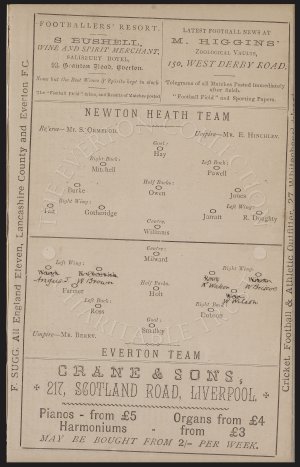 FOOTBALLERS' RESORT.
S BUSHELL,
WINE AND SPIRIT MERCHANT,
SALISBURY HOTEL,
Road, Everton.
None but the Best Wines & Spirits kept in stock
"Football Field" taken, and Results of Matches posted
LATEST FOOTBALL NEWS AT
M. HIGGINS'
ZOOLOGICAL VAULTS,
150, WEST DERBY ROAD.
Telegrams of all Matches Posted immediately
after finish.
"Football Field" and Sporting Papers.
F. SUGG, All England Eleven, Lancashire County and Everton F.C.
Cricket, Football & Athletic Outfitter, 27,
NEWTON HEATH TEAM
Referee—Mr. S. ORMEROD.
Umpire—Mr. E. HINCHLEY.
Goal:
Hay
Right Back:
Mitchell
Left Back:
Powell
Half Backs:
Burke
Owen
Jones
Right Wing:
Left Wing:
Gotheridge
Jarratt
R. Doughty
Centre:
Williams
Centre:
Milward
Left Wing:
Right Wing:
Angus
W Brown
Half Backs:
Farmer
Holt
Left Back:
Ross
Right Back:
Dobson
Goal:
Smalley
Umpire—MR. BERRY.
EVERTON TEAM
CRANE & SONS,
217, SCOTLAND ROAD, LIVERPOOL.
Pianos - from £5 Organs from £4
Harmoniums " from £3
MAY BE BOUGHT FROM 2/- PER WEEK.